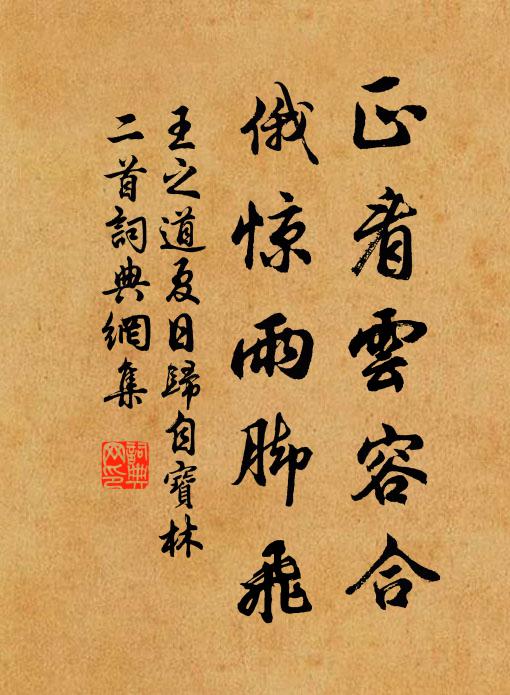 正看雲容合
俄惊雨脚飛
王之道夏日歸自寶林
二首詞典網集
詞典
网印